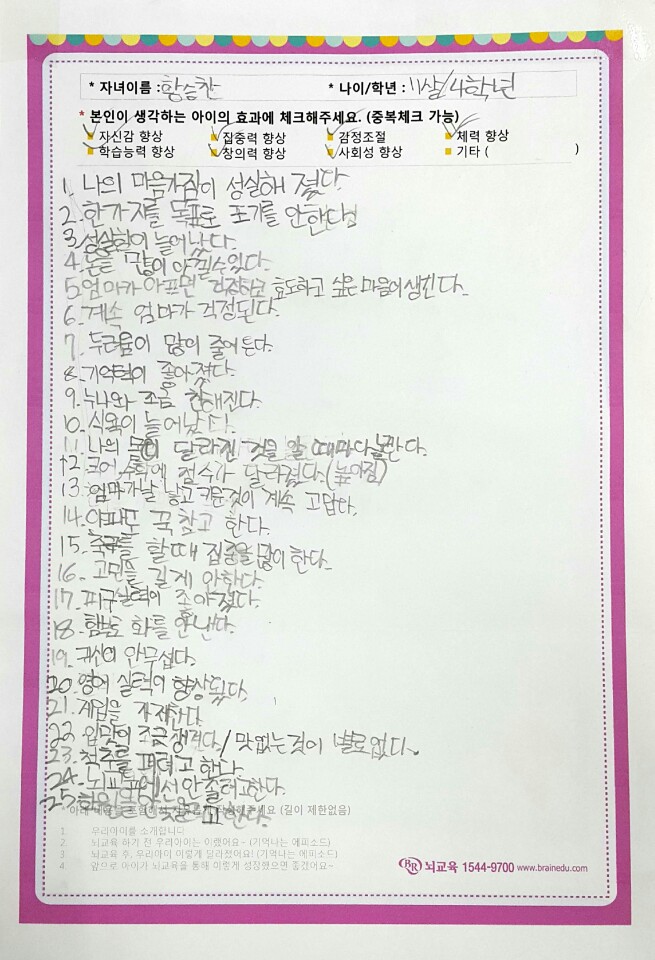 * 자녀이름 : 황승찬 * 나이/학년 : 11살/4학년
* 본인이 생각하는 아이의 효과에 체크해주세요. (중복체크 가능)
자신감 향상 집중력 향상 감정조절 체력 향상
학습능력 향상 창의력 향상 사회성 향상 기타 ( )
1. 나의 마음가짐이 성실해 졌다.
2. 한가지를 목표로 포기를 안한다
3. 성실함이 늘어났다.
4. 돈을 많이 아낄수있다.
5. 엄마가 아프면 걱정하고 효도하고 싶은 마음이 생긴다.
6. 계속 엄마가 걱정된다.
7. 두려움이 많이 줄어든다.
8. 기억력이 좋아졌다.
9. 누나와 조금 친해진다.
10. 식욕이 늘어났다.
11. 나의 몸이 달라진 것을 알 때마다 놀란다.
12. 국어, 수학에 점수가 달라졌다.(높아짐)
13. 엄마가 날 낳고 키운것이 계속 고맙다.
14. 아파도 꾹 참고 한다.
15. 축구를 할때 집중을 많이 한다.
16. 고민을 길게 안한다.
17. 피구실력이 좋아졌다.
18. 함부로 화를 안낸다.
19. 귀신이 안무섭다.
20. 영어 실력이 향상됬다.
21. 게임을 자제한다.
22. 입맛이 조금 생긴다./맛없는것이 별로없다.
23. 척추를 펴려고 한다.
24. 뇌파 에서 안 졸려고한다.
25. 한다.
아래 주세요 (길이 제한없음)
1 우리아이를 소개합니다
2 뇌교육 하기 전 우리아이는 이랬어요~ (기억나는 에피소드)
3 뇌교육 후, 우리아이 이렇게 달라졌어요! (기억나는 에피소드)
4 앞으로 아이가 뇌교육을 통해 이렇게 성장했으면 좋겠어요~
BR 뇌교육 1544-9700 www.brainedu.com